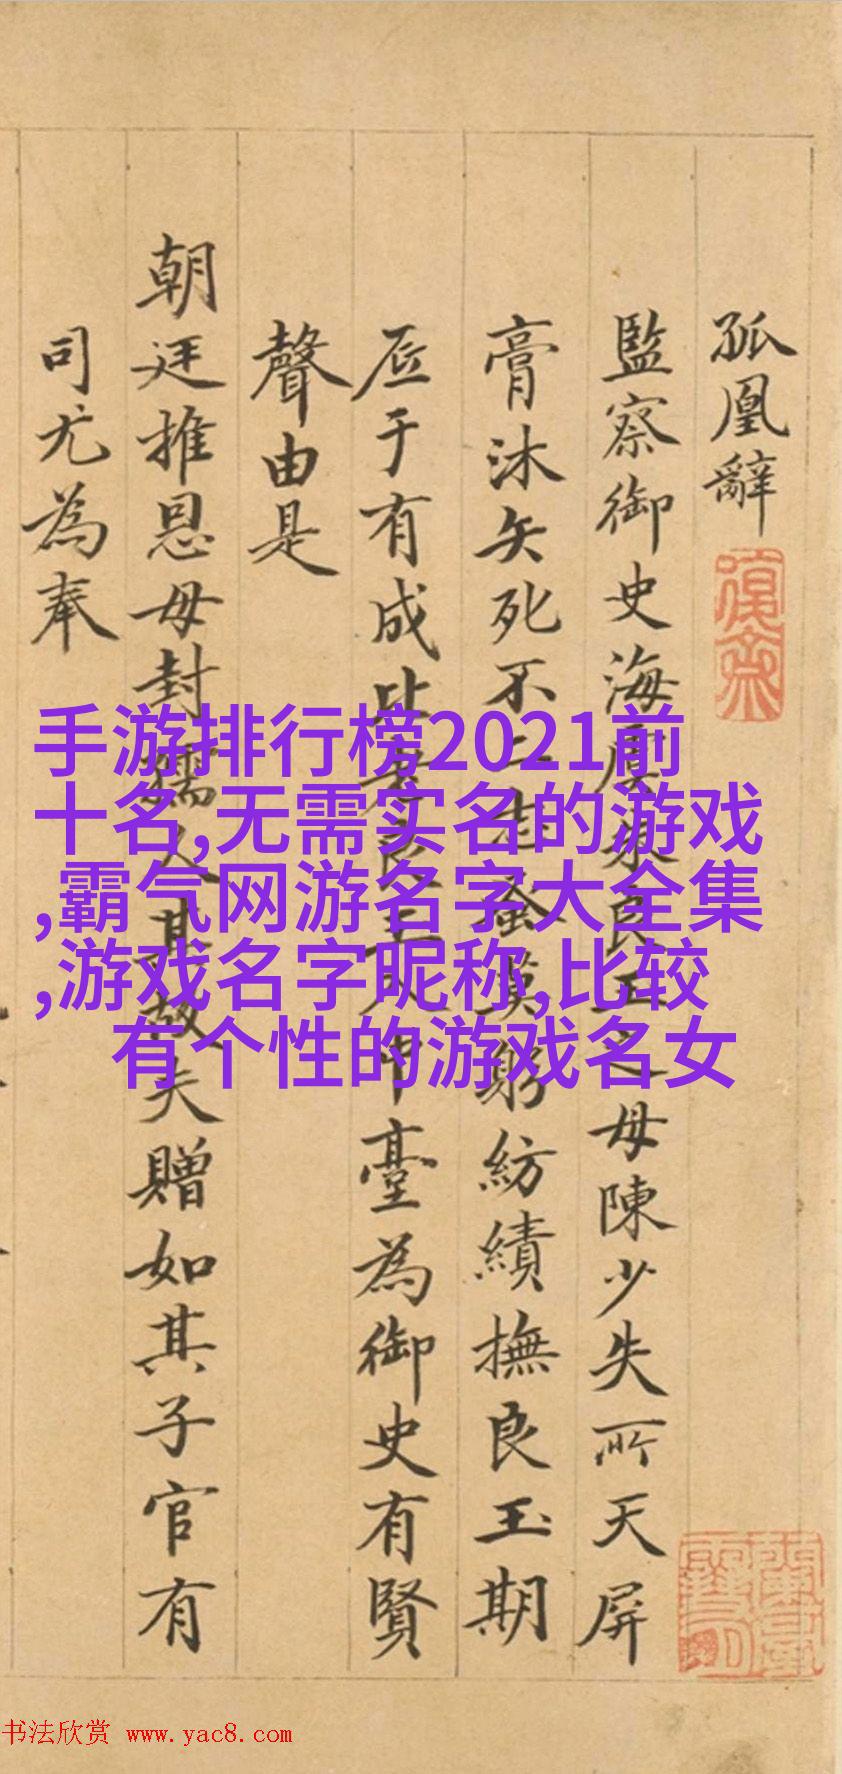 孤凰辭
監察御史海虞良玉之母陳少失所天屏
膏沐矢死不二志蚤莫躬紡績撫良玉期
厎于有成比者良玉入中臺為御史有賢
聲由是
朝廷推恩母封孺人其故夫贈如其子官有
司尤為奉
手游排行榜2021前
十名,无需实名的游戏
,霸气网游名字大全集
,游戏名字昵称,比较
有个性的游戏名女
书法欣赏 www.yac8.com